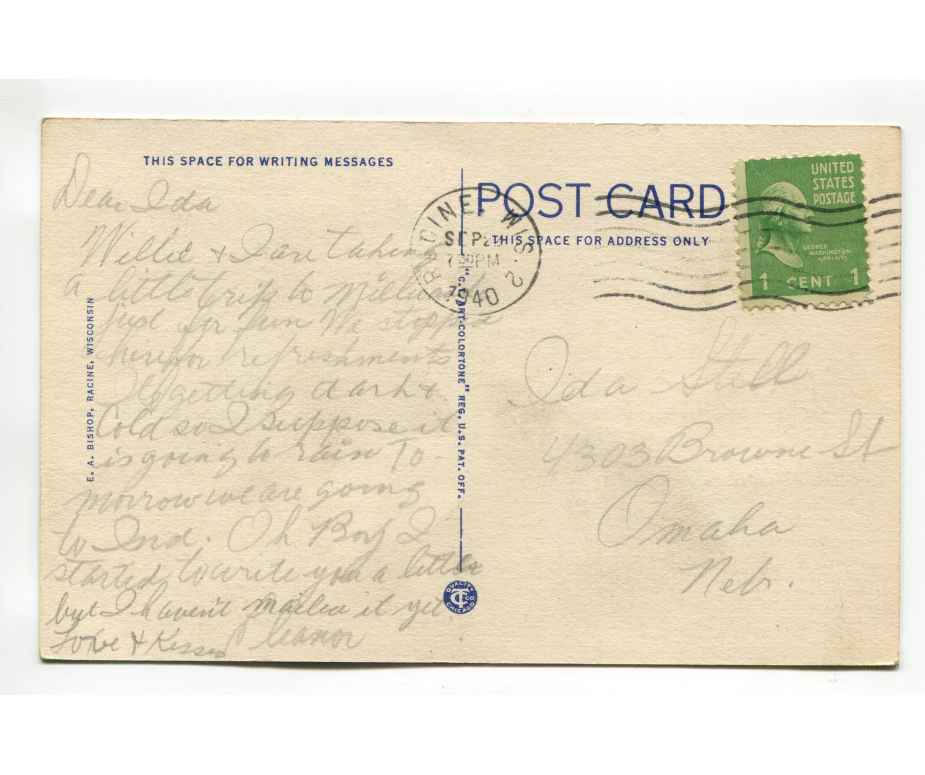 THIS SPACE FOR WRITING MESSAGES
Dear Ida
Willie & I are taking
a little trip to
just for fun We stopped
here for refreshments
getting dark &
Cold so I suppose it
is going to rain To-
morrow we are going
to Ind. Oh Boy I
started to write you a letter
but I haven't mailed it yet.
Love & Kisses leanor
E. A. BISHOP, RACINE, WISCONSIN
POST CARD
THIS SPACE FOR ADDRESS ONLY
RACINE, WIS.
SEP 2
PM
1940
2
"C. T. ART-COLORTONE" REG. U.S. PAT. OFF.
CHICAGO
UNITED
STATES
POSTAGE
GEORGE
WASHINGTON
1 CENT 1
Ida Still
4303 Browne St
Omaha
Nebr.